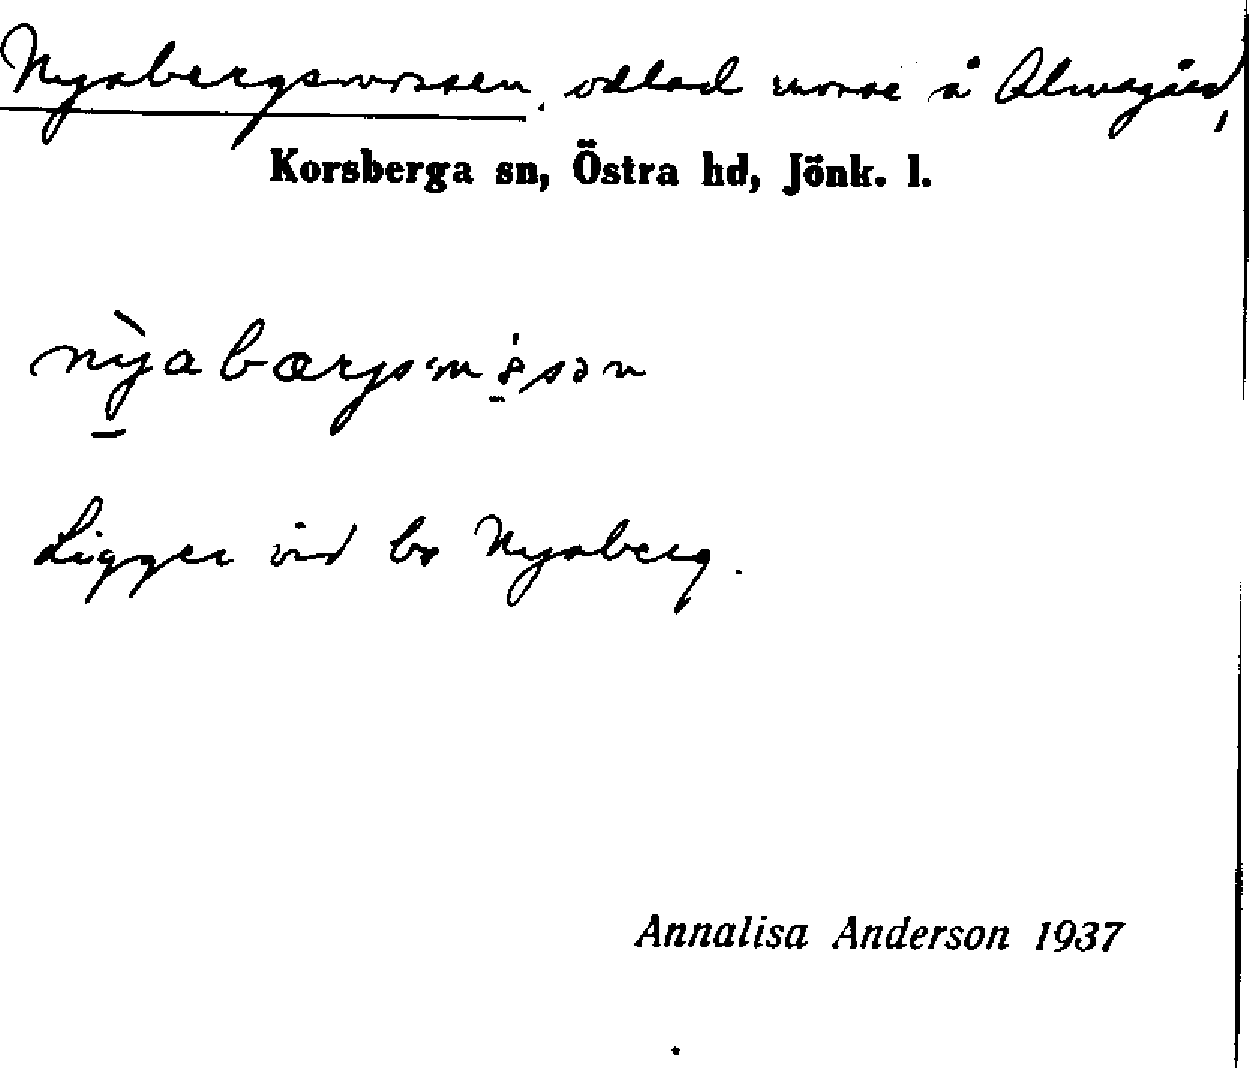 Nyabergsmossen, odlad mosse å Almsgård,
Korsberga sn, Östra hd, Jönk. l.
Ligger vid bs Nyaberg.
Annalisa Anderson 1937